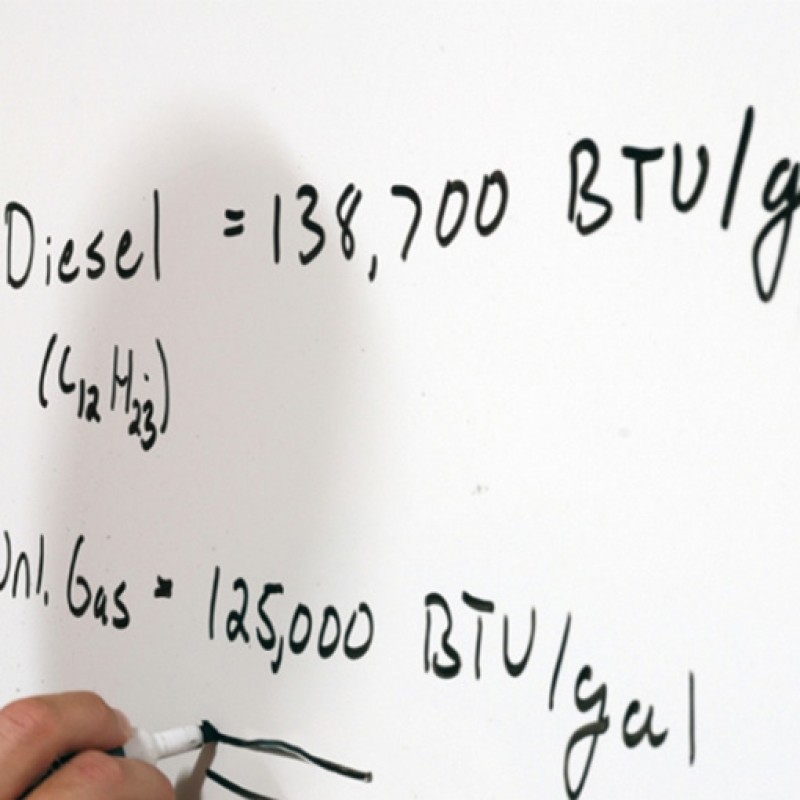 Diesel = 138,700 BTU/g
(C12 H23)
Unl. Gas = 125,000 BTU/gal